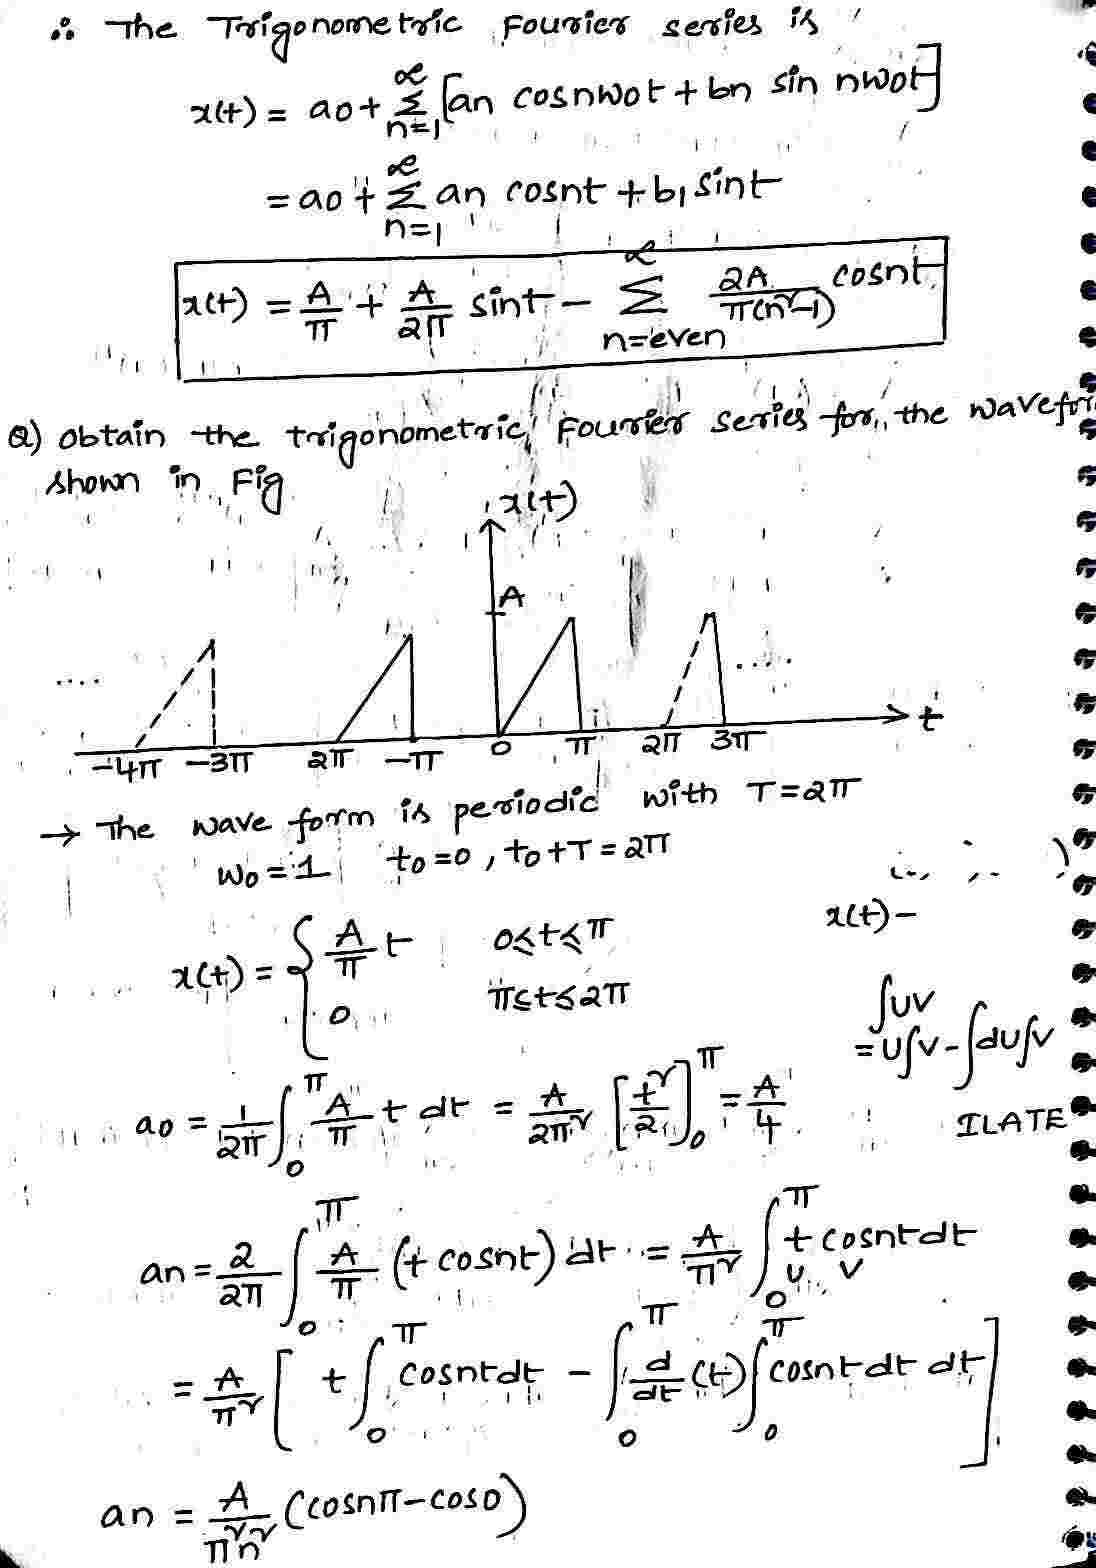 ∴ The Trigonometric Fourier series is
x(t) = a0 + ∞Σn=1 [an cosnwot + bn sin nwot]
= a0 + ∞Σn=1 an cosnt + b1 sint
x(t) = A/π + A/2π sint - ∞Σn=even 2A/π(n²-1) cosnt
Q) obtain the trigonometric Fourier series for the wavefor
shown in Fig
x(t)
A
....
....
-4π -3π 2π -π 0 π 2π 3π t
→ The wave form is periodic with T=2π
wo=1 to=0, to+T=2π
x(t) = { A/π t 0≤t≤π
0 π≤t≤2π
x(t) -
∫uv
= u∫v - ∫du∫v
ILATE
a0 = 1/2π ∫0^π A/π t dt = A/2π² [t²/2]0^π = A/4
an = 2/2π ∫0^π A/π (t cosnt) dt = A/π² ∫0^π t cosnt dt
u v
= A/π² [ t ∫0^π cosnt dt - ∫0^π d/dt (t) ∫0^π cosnt dt dt ]
an = A/π²n² (cosnπ - cos0)